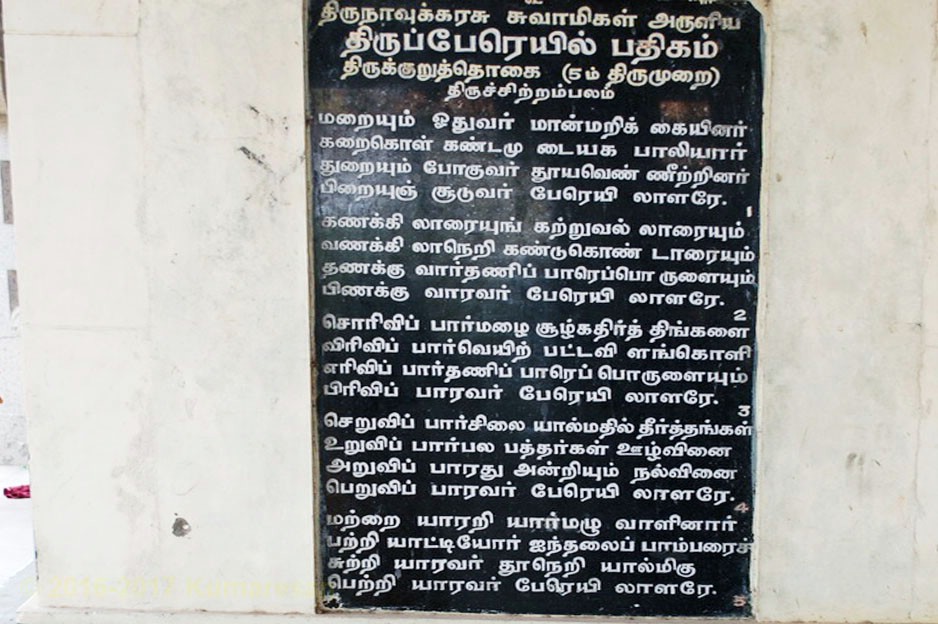 திருநாவுக்கரசு சுவாமிகள் அருளிய
திருப்பேரெயில் பதிகம்
திருக்குறுத்தொகை (5ம் திருமுறை)
திருச்சிற்றம்பலம்
மறையும் ஓதுவர் மான்மறிக் கையினர்
கறைகொள் கண்டமு டையக பாலியார்
துறையும் போகுவர் தூயவெண் ணீற்றினர்
பிறையுஞ் சூடுவர் பேரெயி லாளரே.
1
கணக்கி லாரையுங் கற்றுவல் லாரையும்
வணக்கி லாநெறி கண்டுகொண் டாரையும்
தணக்கு வார்தணிப் பாரெப்பொ ருளையும்
பிணக்கு வாரவர் பேரெயி லாளரே.
2
சொரிவிப் பார்மழை சூழ்கதிர்த் திங்களை
விரிவிப் பார்வெயிற் பட்டவி ளங்கொளி
எரிவிப் பார்தணிப் பாரெப் பொருளையும்
பிரிவிப் பாரவர் பேரெயி லாளரே.
3
செறுவிப் பார்சிலை யால்மதில் தீர்த்தங்கள்
உறுவிப் பார்பல பத்தர்கள் ஊழ்வினை
அறுவிப் பாரது அன்றியும் நல்வினை
பெறுவிப் பாரவர் பேரெயி லாளரே.
4
மற்றை யாரறி யார்மழு வாளினார்
பற்றி யாட்டியோர் ஐந்தலைப் பாம்பரைச்
சுற்றி யாரவர் தூநெறி யால்மிகு
பெற்றி யாரவர் பேரெயி லாளரே.
5